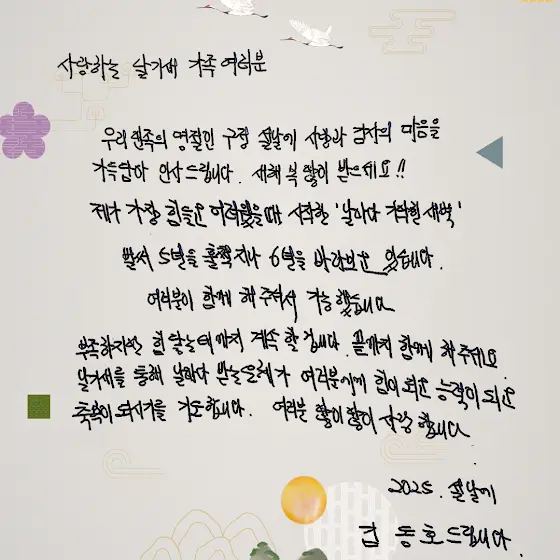 사랑하는 날기새 가족 여러분
우리 민족의 명절인 구정 설날에 사랑과 감사의 마음을
가득담아 인사드립니다. 새해 복 많이 받으세요!!
제가 가장 힘들고 어려웠을때 시작한 '날마다 기막힌 새벽'
벌써 5년을 훌쩍 지나 6년을 바라보고 있습니다.
여러분이 함께 해 주셔서 가능했습니다
부족하지만 힘 닿는데까지 계속 할 겁니다. 끝까지 함께 해 주세요.
날기새를 통해 날마다 받는 은혜가 여러분에게 힘이 되고 능력이 되고
축복이 되시기를 기도합니다. 여러분 많이 많이 사랑 합니다
2025. 설날에
김 동호 드립니다.